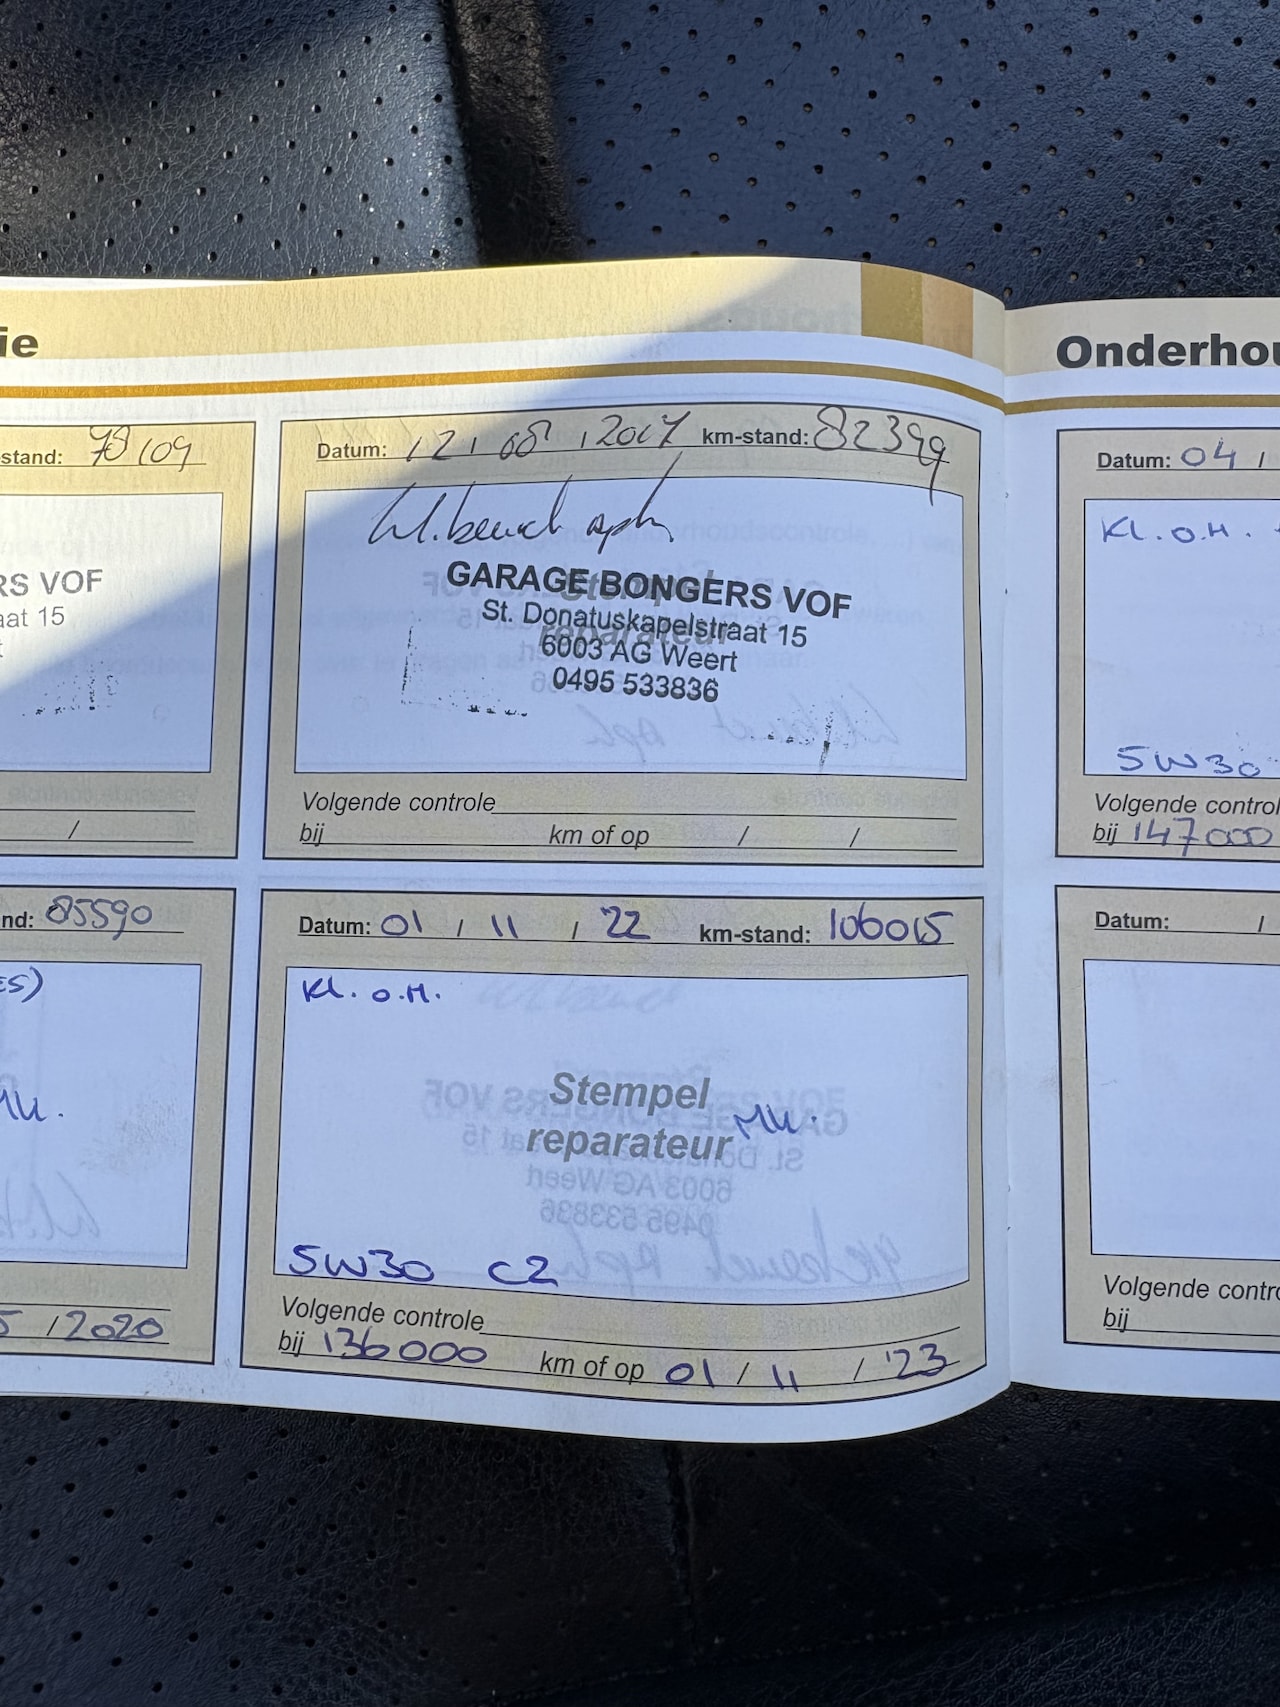 ie
stand: 78109
RS VOF
aat 15
/
Datum: 12 / 08 / 2017 km-stand: 82399
kl.beurt aph
GARAGE BONGERS VOF
St. Donatuskapelstraat 15
reparateur
6003 AG Weert
0495 533836
Volgende controle
bij km of op / /
nd: 85590
ES)
MK.
5 / 2020
Datum: 01 / 11 / '22 km-stand: 106015
Kl. O.H.
Stempel
reparateur MK.
5W30 C2
Volgende controle
bij 136000 km of op 01 / 11 / '23
Onderhou
Datum: 04 /
Kl. O.H.
5W30
Volgende control
bij 147000
Datum: /
Volgende contro
bij